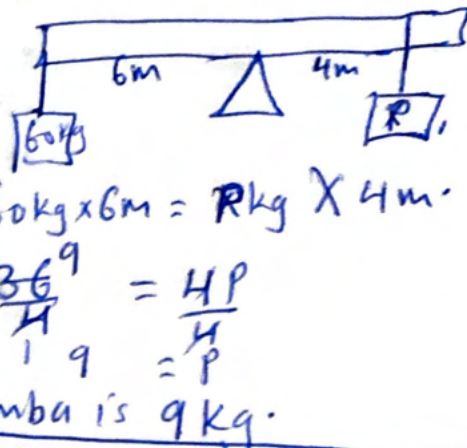 6m 4m
60kg R
0kg x 6m = Rkg X 4m.
36 9 = 4P
4 4
1 9 = P
mba is 9kg.